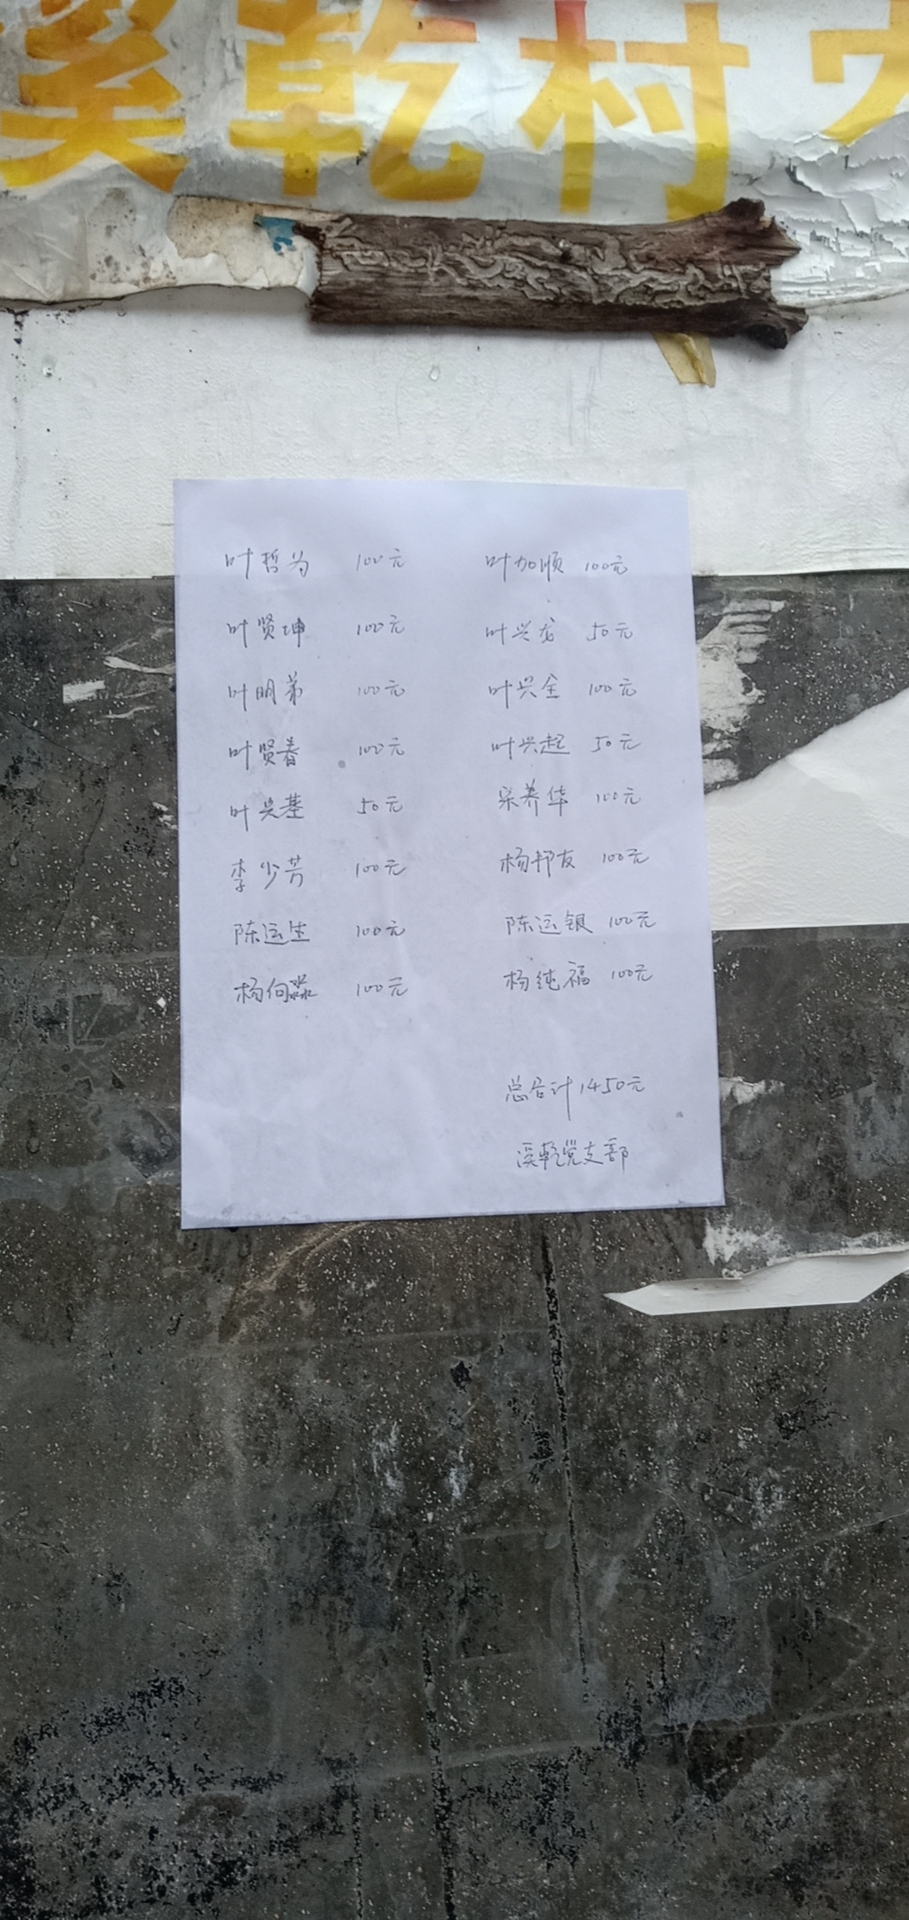 溪乾村
叶哲为 100元 叶加顺 100元
叶贤坤 100元 叶兴龙 50元
叶明弟 100元 叶兴全 100元
叶贤春 100元 叶兴起 50元
叶兴基 50元 宋养华 100元
李少芳 100元 杨邦友 100元
陈运生 100元 陈运银 100元
杨何 100元 杨纯福 100元
总合计1450元
溪乾党支部